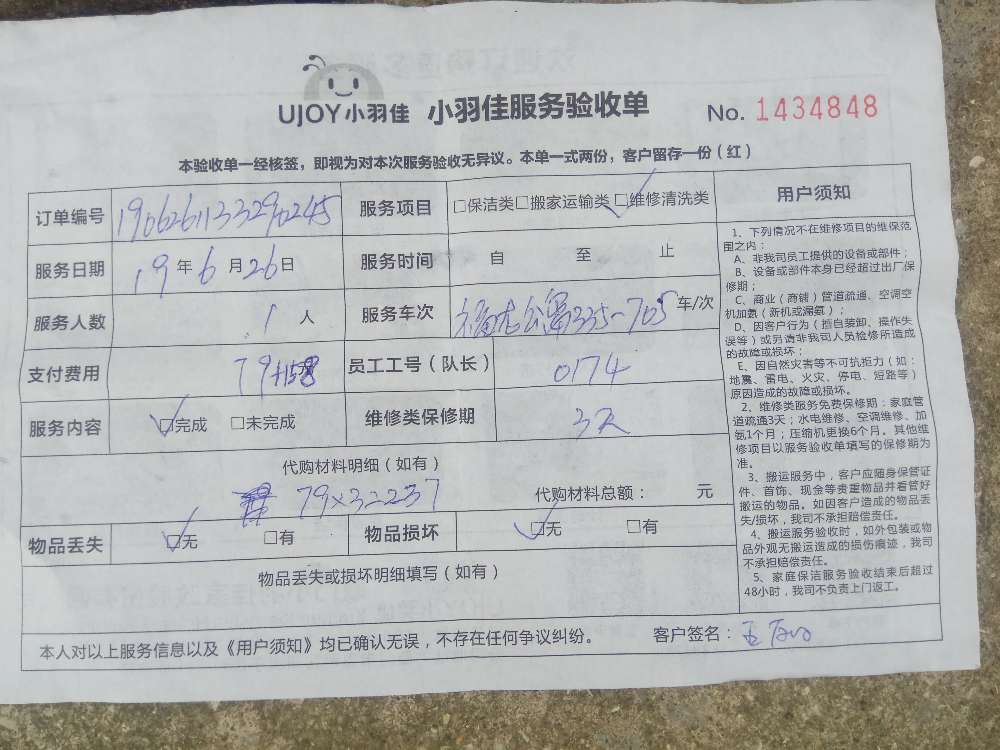 UJOY小羽佳 小羽佳服务验收单 No. 1434848
本验收单一经核签，即视为对本次服务验收无异议。本单一式两份，客户留存一份（红）
订单编号 1906261133290245 服务项目 □保洁类□搬家运输类□维修清洗类
服务日期 19年6月26日 服务时间 自 至 止
服务人数 1人 服务车次 公寓335-705 车/次
支付费用 79+158 员工工号（队长） 0174
服务内容 □完成 □未完成 维修类保修期 3天
代购材料明细（如有）
79×3=237 代购材料总额： 元
物品丢失 □无 □有 物品损坏 □无 □有
物品丢失或损坏明细填写（如有）
本人对以上服务信息以及《用户须知》均已确认无误，不存在任何争议纠纷。 客户签名：
用户须知
1、下列情况不在维修项目的维保范
围之内：
A、非我司员工提供的设备或部件；
B、设备或部件本身已经超过出厂保
修期；
C、商业（商铺）管道疏通、空调空
机加氨（新机或漏氨）；
D、因客户行为（擅自装卸、操作失
误等）或另请非我司人员检修所造成
的故障或损坏；
E、因自然灾害等不可抗拒力（如：
地震、雷电、火灾、停电、短路等）
原因造成的故障或损坏。
2、维修类服务免费保修期：家庭管
道疏通3天；水电维修、空调维修、加
氨1个月；压缩机更换6个月。其他维
修项目以服务验收单填写的保修期为
准。
3、搬运服务中，客户应随身保管证
件、首饰、现金等贵重物品并看管好
搬运的物品。如因客户造成的物品丢
失/损坏，我司不承担赔偿责任。
4、搬运服务验收时，如外包装或物
品外观无搬运造成的损伤痕迹，我司
不承担赔偿责任。
5、家庭保洁服务验收结束后超过
48小时，我司不负责上门返工。